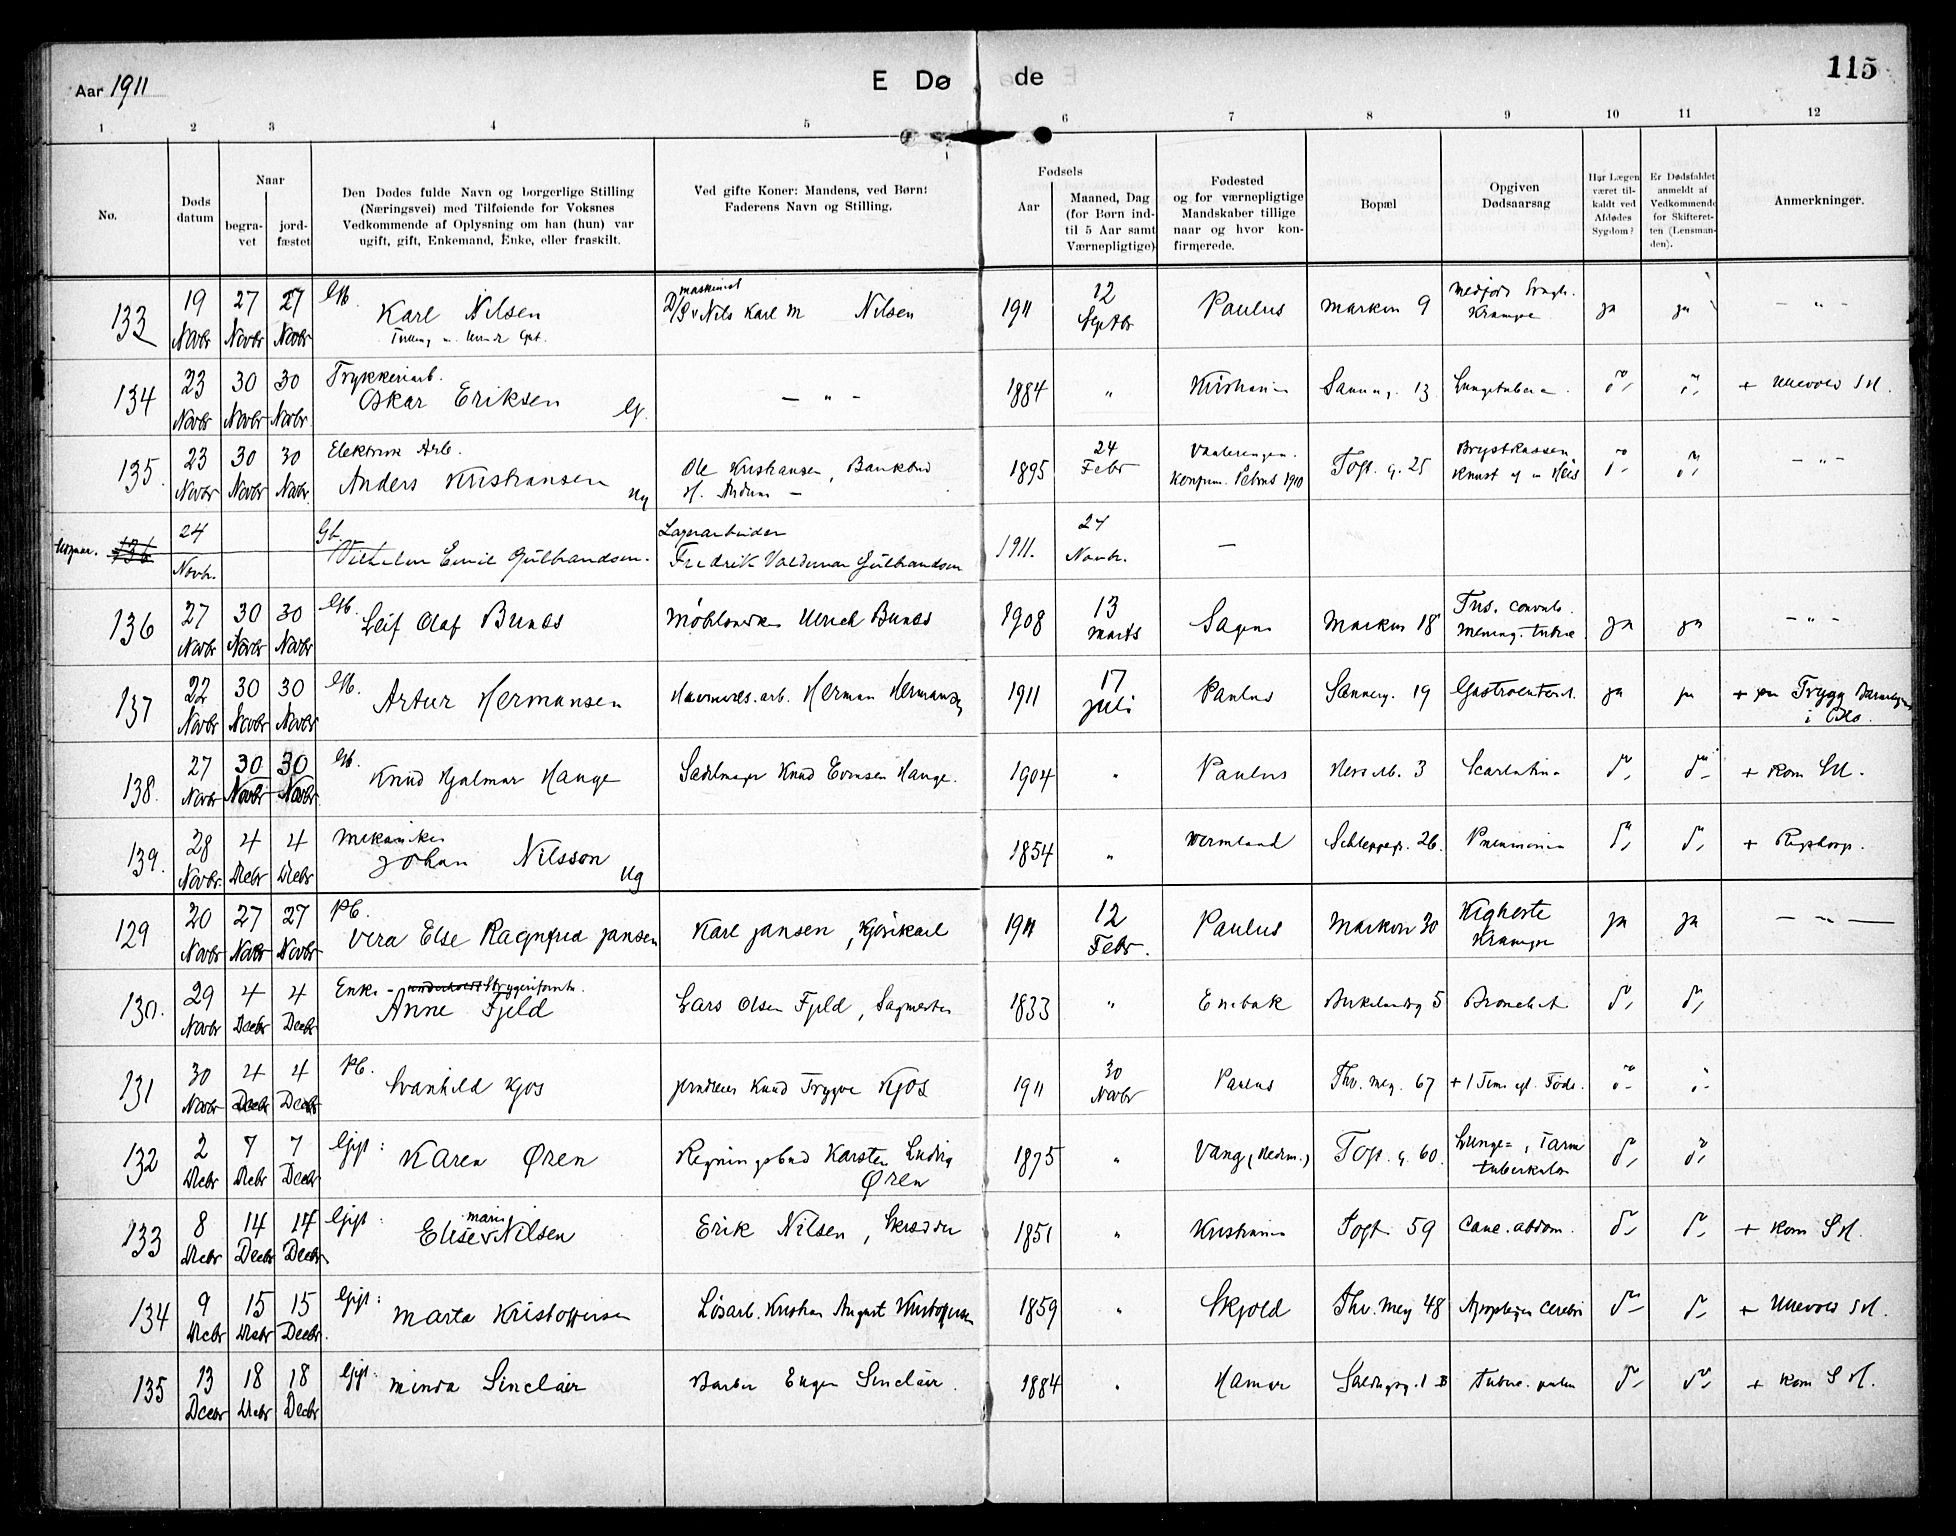 Aar 1911
E Døde
115
1 2 3 4 5 6 7 8 9 10 11 12
No.
Døds datum
Naar
begra-vet
jord-fæstet
Den Dødes fulde Navn og borgerlige Stilling
(Næringsvei) med Tilføiende for Voksnes
Vedkommende af Oplysning om han (hun) var
ugift, gift, Enkemand, Enke, eller fraskilt.
Ved gifte Koner: Mandens, ved Børn:
Faderens Navn og Stilling.
Fødsels
Aar
Maaned, Dag
(for Børn ind-
til 5 Aar samt
Værnepligtige)
Fødested
og for værnepligtige
Mandskaber tillige
naar og hvor kon-
firmerede.
Bopæl
Opgiven
Dødsaarsag
Har Lægen
været til-
kaldt ved
Afdødes
Sygdom?
Er Dødsfaldet
anmeldt af
Vedkommende
for Skifteret-
ten (Lensman-
den).
Anmerkninger.
133 19 Novbr 27 Novbr 27 Novbr Gb. Karl Nilsen maskinist Nils Karl M Nilsen 1911 12 Septbr Paulus Markvn 9 Krampe ja ja — " —
134 23 Novbr 30 Novbr 30 Novbr Trykkeriarb. Oskar Eriksen G. — " — 1884 " Kristiania Sannerg. 13 Lungetuberc. do do + Ullevold SH.
135. 23 Novbr 30 Novbr 30 Novbr Elektrisk Arb. Anders Kristiansen Ug Ole Kristiansen, Bankbud 1895 24 Febr Vaalerengen. Konfirm. Petrus 1910 Toft. g. 25 Brystkassen knust af en Heis do do — " —
136 24 Novbr. Gb. Vilhelm Emil Gulbrandsen. Lagerarbeider Fredrik Valdemar Gulbrandsen 1911. 24 Novbr. —
136 27 Novbr 30 Novbr 30 Novbr Gb. Leif Olaf Bunæs Møbelsnekker Ulrich Bunæs 1908 13 Marts Sagene Markvn 18 Tus. convuls. Mening. tuberc ja ja — " —
137 22 Novbr 30 Novbr 30 Novbr Gb. Artur Hermansen Havnevæs. arb. Herman Hermansen 1911 17 Juli Paulus Sannerg. 19 Gastroenterit. ja ja + paa Trygg i
138. 27 Novbr 30 Novbr 30 Novbr Gb. Knud Hjalmar Hauge Sadelmager Knud Evensen Hauge. 1904 " Paulus 3 Scarlatina do do + Kom SH.
139. 28 Novbr. 4 Decbr 4 Decbr Mekaniker Johan Nilsson Ug 1854 " Vermland Schleppegr. 26. Pneumonia do do + Rigshosp.
129 20 Novbr 27 Novbr 27 Novbr Pb. Vera Else Ragnfrid Jansen Karl Jansen, Kjørekarl 1911 12 Febr. Paulus Markvn 30 Kighoste Krampe ja ja — " —
130. 29 Novbr 4 Decbr 4 Decbr Enke - Anne Fjeld Lars Olsen Fjeld, Sagmester 1833 " Enebak Birkelundsg 5 Bronchit. do do
131 30 Novbr 4 Decbr 4 Decbr Pb. Svanhild Kjos Knud Trygve Kjos 1911 30 Novbr Paulus Thv. Mey. 67 + 1 Time eft. Føds. do do
132 2 Decbr 7 Decbr 7 Decbr Gift: Karen Øren Regningsbud Karsten Ludvig Øren 1875 " Vang (Hedm.) Toft. g. 60. Lunge=, Tarm tuberkulose do do
133 8 Decbr 14 Decbr 14 Decbr Gift: Elise Marie Nilsen Erik Nilsen, Skrædder 1851 " Kristiania Toft 59 Canc. abdom. do do + Kom SH.
134 9 Decbr 15 Decbr 15 Decbr. Gift: Marta Kristoffersen Løsarb. Kristian August Kristoffersen 1859 " Skjold Thv. Mey 48 Apoplexia cerebri do do + Ullevold SH.
135 13 Decbr 18 Decbr 18 Decbr Gift: Minda Sinclair Barber Eugen Sinclair. 1884 " Hamar 1 B Tuberc. pulm do do + Kom SH.